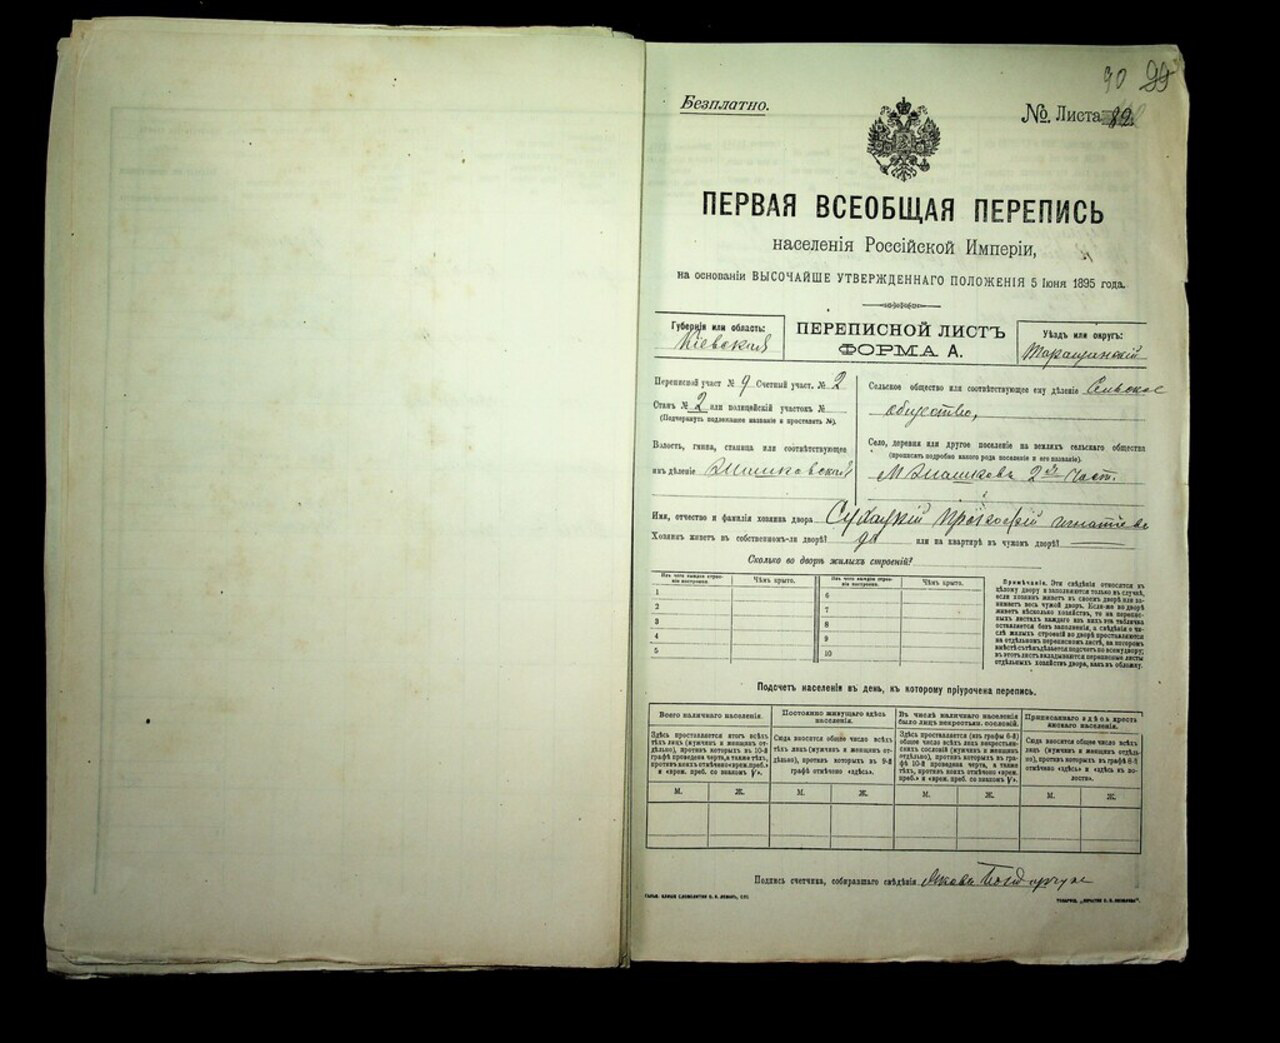 90 99
Безплатно.
№ Листа 82
ПЕРВАЯ ВСЕОБЩАЯ ПЕРЕПИСЬ
населенія Россійской Имперіи,
на основаніи ВЫСОЧАЙШЕ УТВЕРЖДЕННАГО ПОЛОЖЕНІЯ 5 Іюня 1895 года.
Губернія или область:
Кіевская
ПЕРЕПИСНОЙ ЛИСТЪ
ФОРМА А.
Уѣздъ или округъ:
Таращанскій
Переписной участ № 9 Счетный участ. № 2
Станъ № 2 или полицейскій участокъ №
(Подчеркнуть подлежащее названіе и проставить №).
Волость, гмина, станица или соотвѣтствующее
имъ дѣленіе
Сельское общество или соотвѣтствующее ему дѣленіе Сельское
общество,
Село, деревня или другое поселеніе на земляхъ сельскаго общества
(прописать подробно какого рода поселеніе и его названіе).
М 2я част.
Имя, отчество и фамилія хозяина двора
Хозяинъ живетъ въ собственномъ-ли дворѣ? да или на квартирѣ въ чужомъ дворѣ?
Сколько во дворѣ жилыхъ строеній?
Изъ чего каждое строеніе построено.
Чѣмъ крыто.
Изъ чего каждое строеніе построено.
Чѣмъ крыто.
1
2
3
4
5
6
7
8
9
10
Примѣчаніе. Эти свѣдѣнія относятся къ
цѣлому двору и заполняются только въ случаѣ,
если хозяинъ живетъ въ своемъ дворѣ или за-
нимаетъ весь чужой дворъ. Если-же во дворѣ
живетъ нѣсколько хозяйствъ, то на перепис-
ныхъ листахъ каждаго изъ нихъ эта табличка
оставляется безъ заполненія, а свѣдѣнія о чи-
слѣ жилыхъ строеній во дворѣ проставляются
на отдѣльномъ переписномъ листѣ, на которомъ
вмѣстѣ съ тѣмъ дѣлается подсчетъ по всему двору;
въ этотъ листъ вкладываются переписные листы
отдѣльныхъ хозяйствъ двора, какъ въ обложку.
Подсчетъ населенія въ день, къ которому пріурочена перепись.
Всего наличнаго населенія.
Здѣсь проставляется итогъ всѣхъ
тѣхъ лицъ (мужчинъ и женщинъ от-
дѣльно), противъ которыхъ въ 10-й
графѣ проведена черта, а также тѣхъ,
противъ коихъ отмѣчено «врем. преб.»
и «врем. преб. со знакомъ V».
Постоянно живущаго здѣсь
населенія.
Сюда вносится общее число всѣхъ
тѣхъ лицъ (мужчинъ и женщинъ от-
дѣльно), противъ которыхъ въ 9-й
графѣ отмѣчено «здѣсь».
Въ числѣ наличнаго населенія
было лицъ некрестьян. сословій.
Здѣсь проставляется (изъ графы 6-й)
общее число всѣхъ лицъ некрестьян-
скихъ сословій (мужчинъ и женщинъ
отдѣльно), противъ которыхъ въ гра-
фѣ 10-й проведена черта, а также
тѣхъ, противъ коихъ отмѣчено «врем.
преб.» и «врем. преб. со знакомъ V».
Приписаннаго здѣсь крестъ-
янскаго населенія.
Сюда вносится общее число всѣхъ
лицъ (мужчинъ и женщинъ отдѣль-
но), противъ которыхъ въ графѣ 8-й
отмѣчено «здѣсь» и «здѣсь въ во-
лости».
М. Ж. М. Ж. М. Ж. М. Ж.
Подпись счетчика, собиравшаго свѣдѣнія